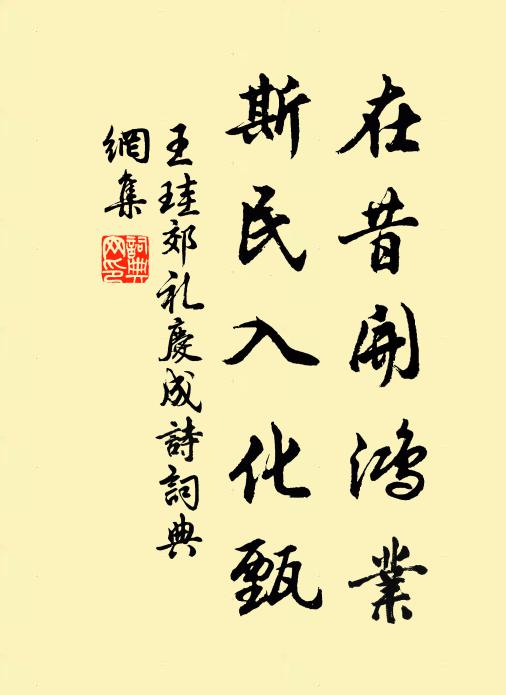 在昔開鴻業
斯民入化甄
王珪郊礼慶成詩詞典
網集
詞典网印